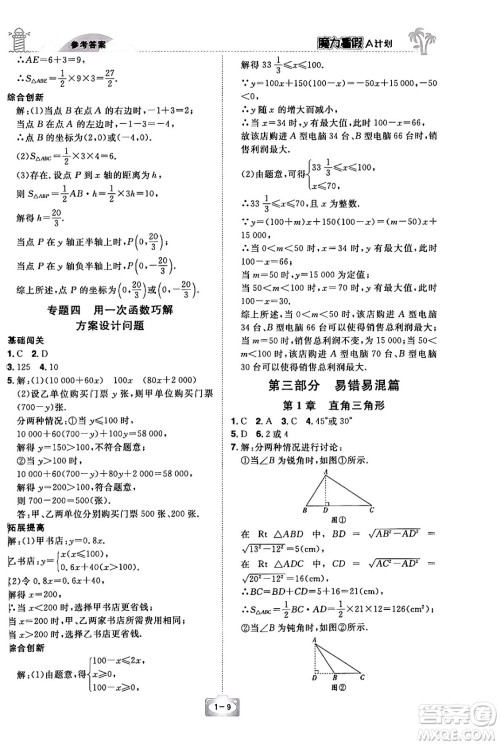 参考答案
魔力暑假 A计划
∴AE=6+3=9,
∴S△ABE=1/2×9×3=27/2.
综合创新
解:(1)当点 B 在点 A 的右边时,-1+3=2,
当点 B 在点 A 的左边时,-1-3=-4,
∴点 B 的坐标为(2,0)或(-4,0).
(2)S△ABC=1/2×3×4=6.
(3)存在.设点 P 到 x 轴的距离为 h,
则S△ABP=1/2AB·h=1/2×3h=10,
解得 h=20/3.
当点 P 在 y 轴正半轴上时,P(0,20/3),
当点 P 在 y 轴负半轴上时,P(0,-20/3),
综上所述,点 P 的坐标为(0,20/3)或(0,-20/3).
专题四 用一次函数巧解
方案设计问题
基础闯关
1.C 2.D
3.125 4.16
5.解:(1)(10 000+60x) 100x (80x+2 000)
(2)设乙单位购买门票 x 张,则甲单位购买门票
(700-x)张.
分两种情况:①当 x≤100时,
10 000+60(700-x)+100x=56 000,
解得 x=100,不符合题意,舍去;
②当 x>100时,
10 000+60(700-x)+80x+2 000=56 000,
解得 x=200,符合题意,
则 700-200=500(张).
答:甲、乙两单位购买门票分别为 500 张、200 张.
拓展提高
解:(1)甲书店:y=0.8x.
乙书店:y={x(0<x≤100), 0.6x+40(x>100).
(2)令 0.8x=0.6x+40,
解得 x=200.
当 x<200时,选择甲书店更省钱;
当 x=200时,甲、乙书店所需费用相同;
当 x>200时,选择乙书店更省钱.
综合创新
解:(1)根据题意,得{100-x≤2x, 100-x≥0,
解得 33 1/3≤x≤100.
∵y=100x+150(100-x)=-50x+15 000,
∴y 随 x 的增大而减小,
∴当 x=34 时,y 有最大值,则 100-x=66,
故该店购进 A 型电脑 34 台、B 型电脑 66 台时,
销售利润最大.
(2)由题意,可得{100-x≤2x, 100-x≥0, 0≤x≤70,
∴33 1/3≤x≤70,且 x 为整数.
∵y=(100+m)x+150(100-x)=(m-50)x+
15 000,
∴当 0<m<50 时,x=34 时,y 有最大值,此时
100-x=66;
当 m=50 时,y=15 000;
当 50<m<100 时,x=70 时,y 有最大值,此时
100-x=30.
综上所述,当 0<m<50 时,购进 A 型电脑 34
台、B 型电脑 66 台,销售总利润最大;
当 m=50 时,销售总利润恒为 15 000 元;
当 50<m<100 时,购进 A 型电脑 70 台、B 型电
脑 30 台,销售总利润最大.
第三部分 易错易混篇
第 1 章 直角三角形
1.C 2.A 3.C 4.45°或30°
5.D 6.2或4
7.解:分两种情况进行讨论:
①当∠B 为锐角时,如图①,
A
B D C
图①
在 Rt △ABD 中,BD=√AB²-AD²
=√13²-12²=5(cm),
在 Rt △ADC 中,DC=√AC²-AD²
=√20²-12²=16(cm),
∴BC=BD+DC=5+16=21(cm),
∴S△ABC=1/2BC·AD=1/2×21×12=126(cm²).
②当∠B 为钝角时,如图②,
A
D B C
图②
1-9